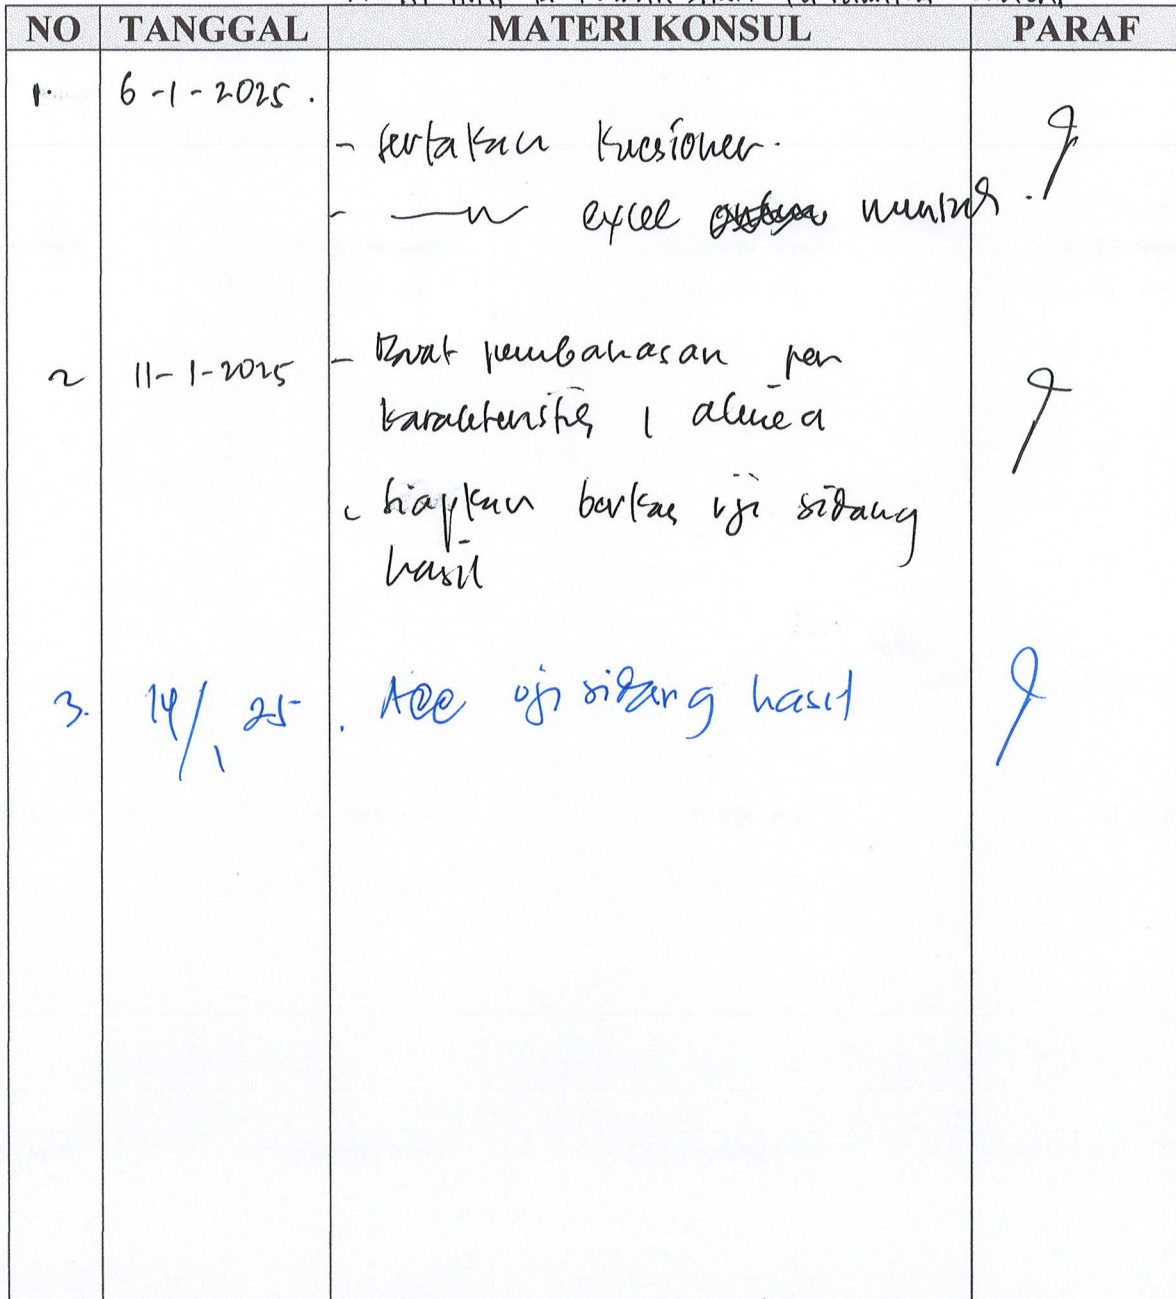 NO TANGGAL MATERI KONSUL PARAF
1. 6-1-2025.
- Sertakan Kuesioner.
- excel
2 11-1-2025 - Buat pembahasan per
karakteristik 1 alinea
- Siapkan berkas uji sidang
hasil
3. 14/1 25 . Acc uji sidang hasil